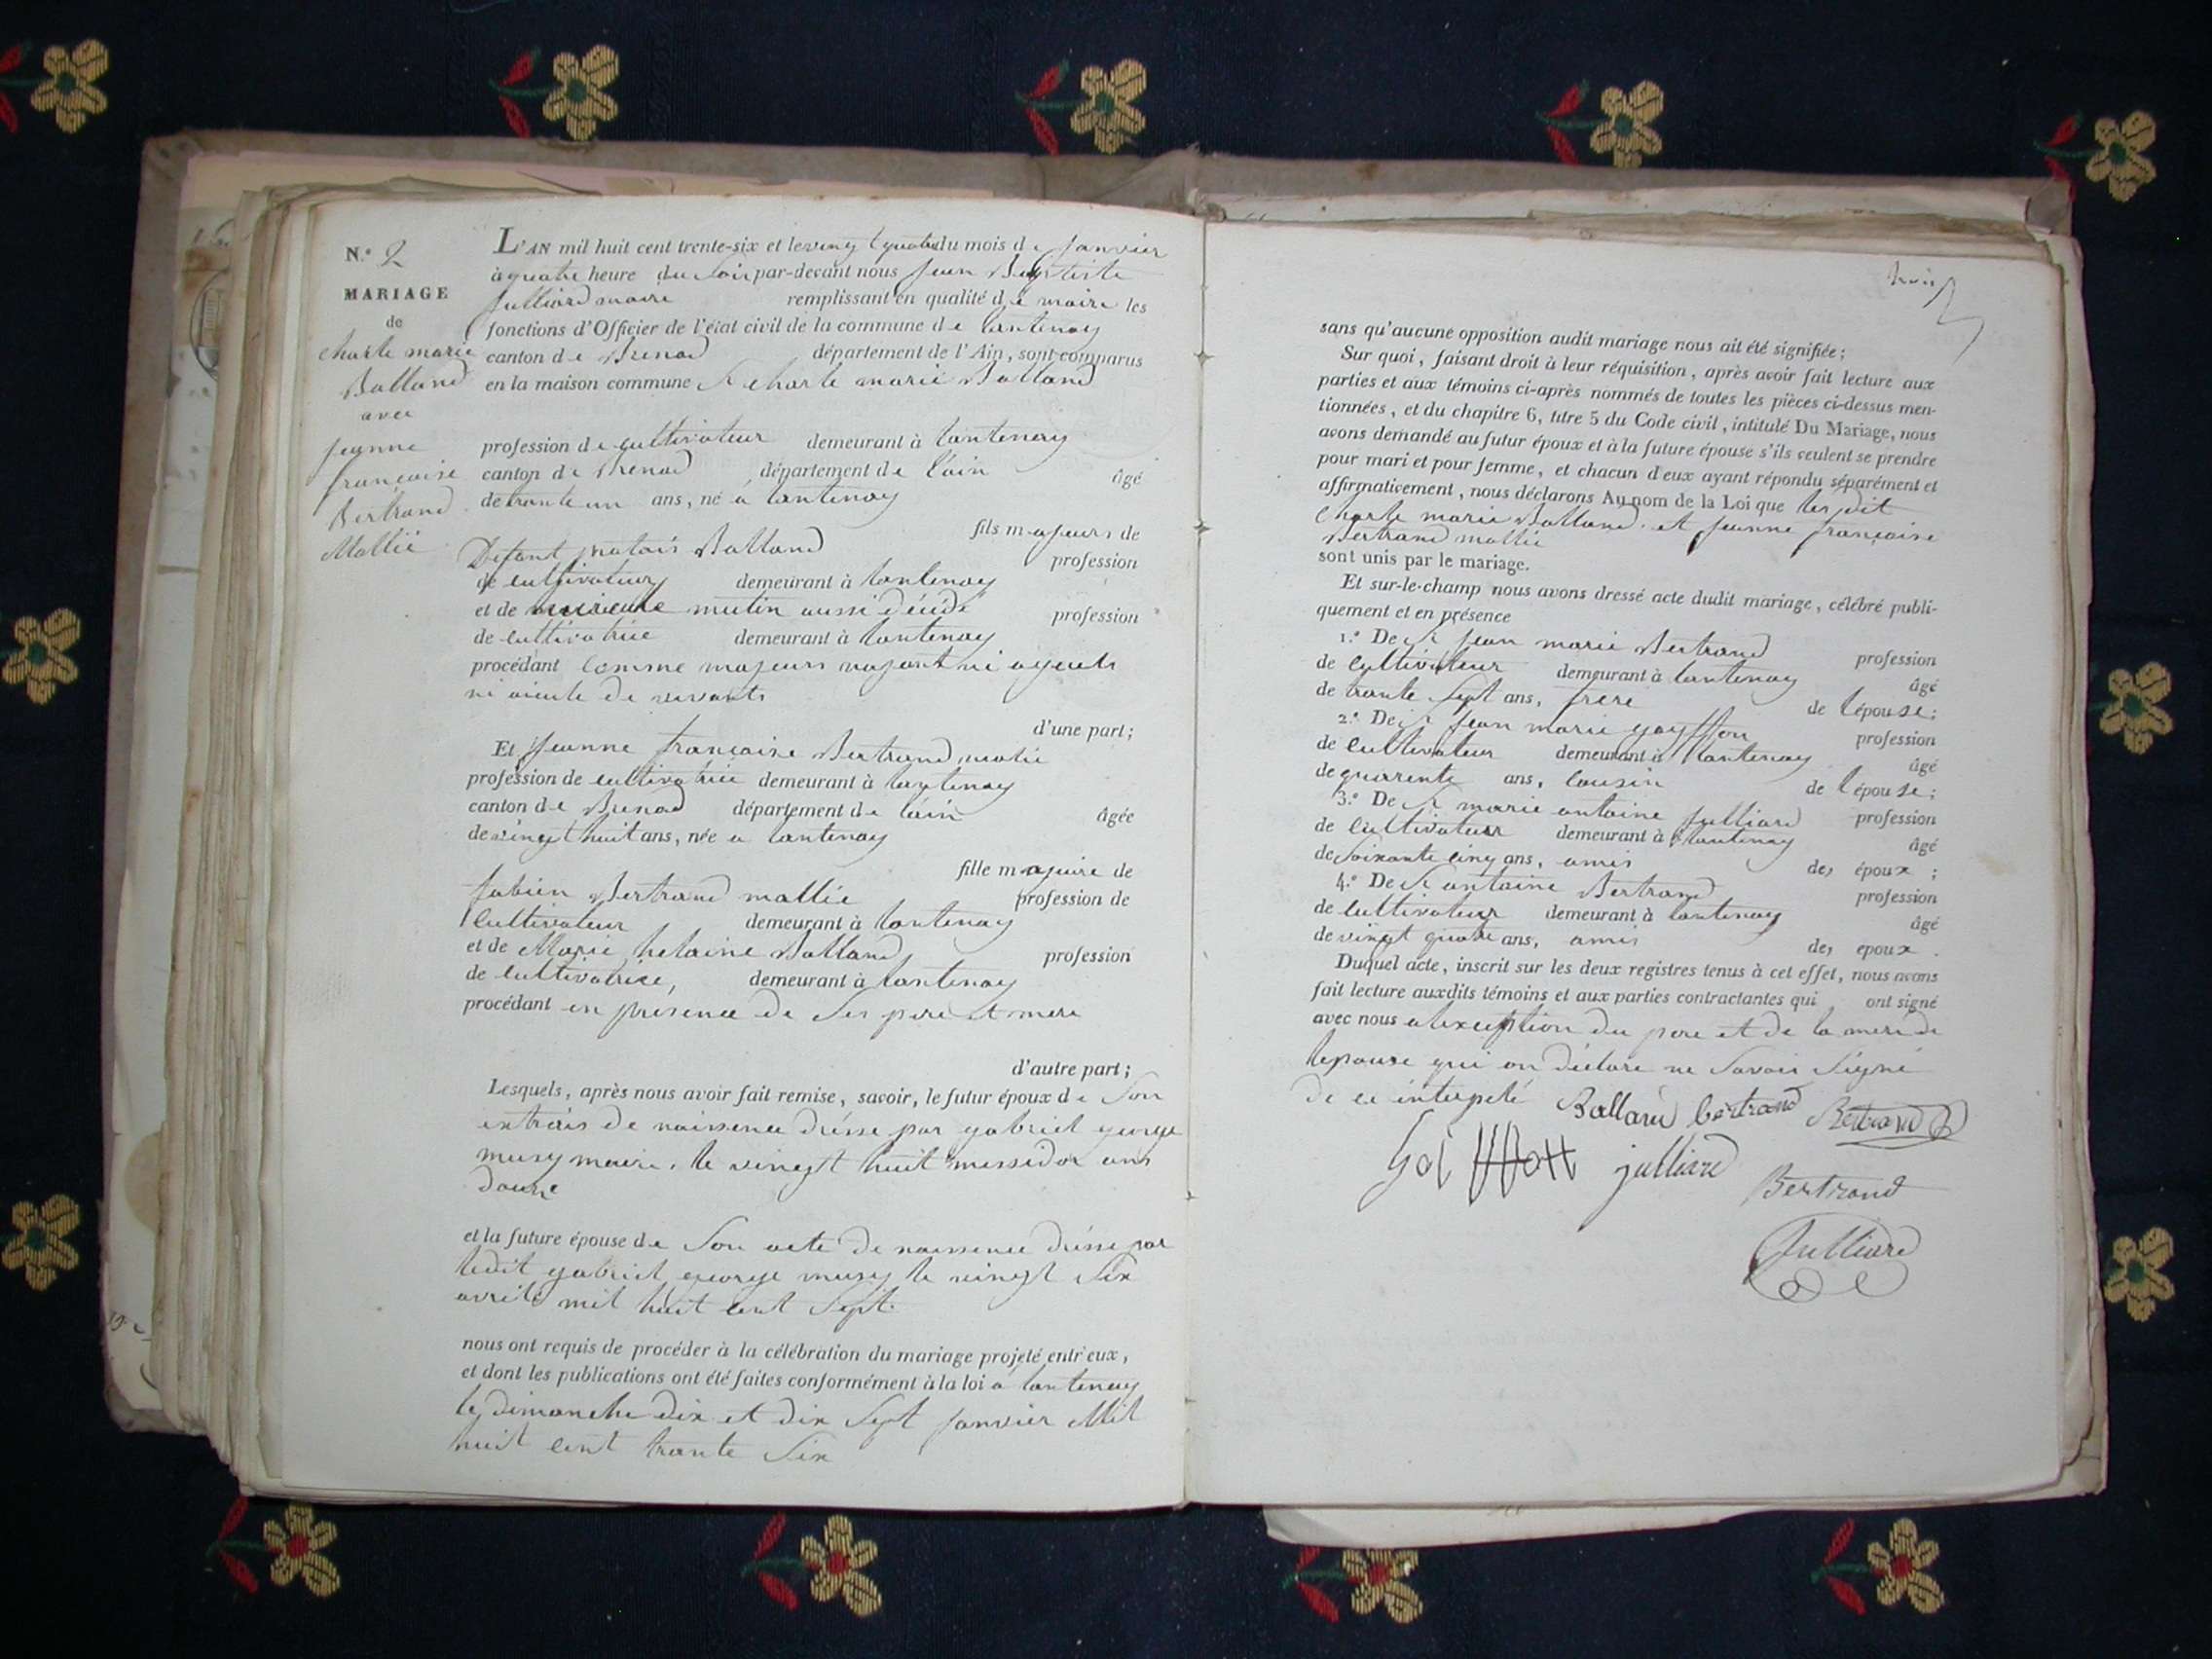 N.° 2
MARIAGE
de
charle marie
Balland
avec
jeanne
françoise
Bertrand
Mallié
L'AN mil huit cent trente-six et le vingt quatre du mois de janvier
à quatre heure du soir par-devant nous jean Baptiste
julliard maire remplissant en qualité de maire les
fonctions d'Officier de l'état civil de la commune de lantenay
canton de Brenod département de l'Ain, sont comparus
en la maison commune Sr charle marie Balland
profession de cultivateur demeurant à lantenay
canton de Brenod département de l'ain âgé
de trante un ans, né à lantenay
fils majeurs de
Defant Balland profession
de cultivateur demeurant à lantenay
et de mutin aussi décédé profession
de cultivatrice demeurant à lantenay
procédant comme majeurs nayant ni ayeuls
ni aieule de vivants
d'une part;
Et jeanne françoise Bertrand malié
profession de cultivatrice demeurant à lantenay
canton de Brenod département de l'ain âgée
de vingt huit ans, née a lantenay
fille majeure de
fabien Bertrand mallié profession de
cultivateur demeurant à lantenay
et de Marie helaine Balland profession
de cultivatrice, demeurant à lantenay
procédant en présence de ses pere et mere
d'autre part;
Lesquels, après nous avoir fait remise, savoir, le futur époux de Son
extrais de naissence drésse par gabriel george
musy maire, le vingt huit messidor ans
douze
et la future épouse de Son acte de naissence drésse par
ledit gabriel george musy le vingt six
avrile mil huit cent sept.
nous ont requis de procéder à la célébration du mariage projeté entr'eux,
et dont les publications ont été faites conformément à la loi à lantenay
le dimanche dix et dix sept janvier Mil
huit cent trante six
trois
sans qu'aucune opposition audit mariage nous ait été signifiée;
Sur quoi, faisant droit à leur réquisition, après avoir fait lecture aux
parties et aux témoins ci-après nommés de toutes les pièces ci-dessus men-
tionnées, et du chapitre 6, titre 5 du Code civil, intitulé Du Mariage, nous
avons demandé au futur époux et à la future épouse s'ils veulent se prendre
pour mari et pour femme, et chacun d'eux ayant répondu séparément et
affirmativement, nous déclarons Au nom de la Loi que les dit
Charle marie Balland et jeanne françoise
Bertrand mallié
sont unis par le mariage.
Et sur-le-champ nous avons dressé acte dudit mariage, célébré publi-
quement et en présence
1.° De Sr jean marie Bertrand profession
de cultivateur demeurant à lantenay âgé
de trante sept ans, frere de lépouse;
2.° De Sr jean marie gayffon profession
de cultivateur demeurant à lantenay âgé
de quarente ans, cousin de lépouse;
3.° De Sr marie antoine julliard profession
de cultivateur demeurant à lantenay âgé
de soixante cinq ans, amis des époux;
4.° De Sr antoine Bertrand profession
de cultivateur demeurant à lantenay âgé
de vingt quatre ans, amis des epoux.
Duquel acte, inscrit sur les deux registres tenus à cet effet, nous avons
fait lecture auxdits témoins et aux parties contractantes qui ont signé
avec nous a lexception du pere et de la mere de
lepouse qui on déclare ne savoir signé
de ce interpelé
Balland bertrand Bertrand
julliard
Bertrand
Julliard